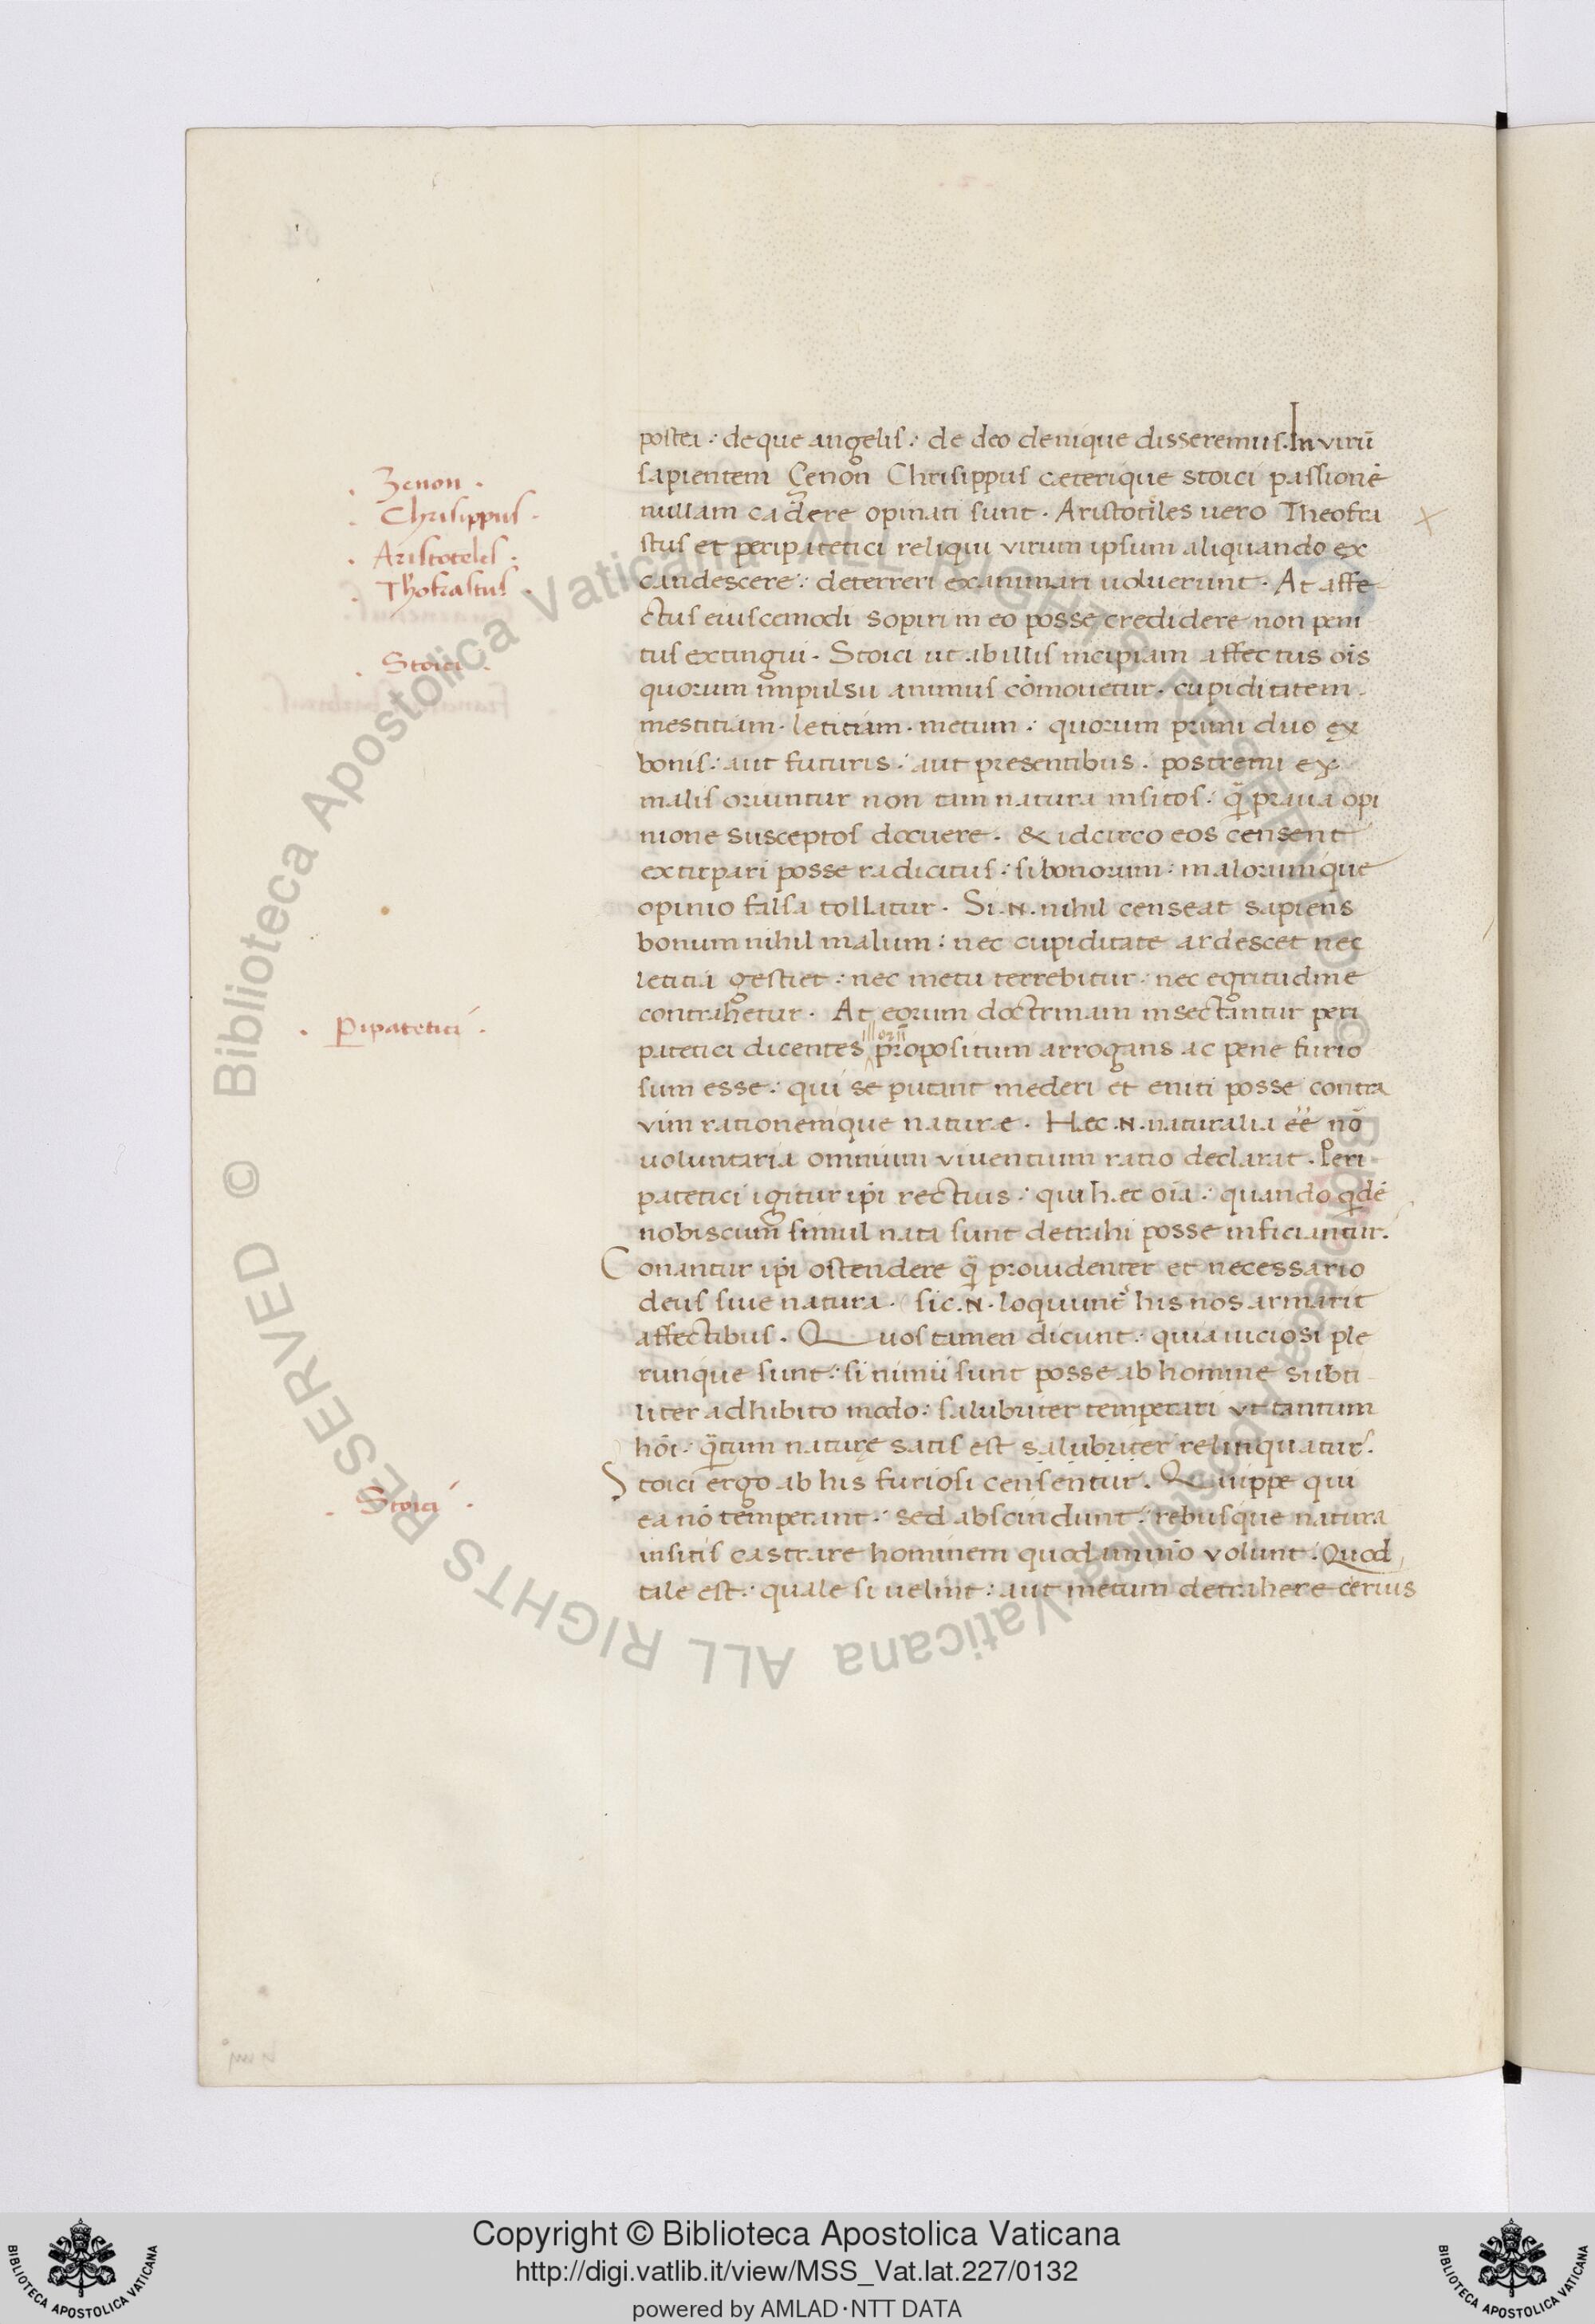 postea : deque angelis : de deo denique disseremus. In virū
sapientem Çenon Chrisippus ceterique stoici passionē
nullam cadere opinati sunt . Aristotiles uero Theofra
stus et peripatetici reliqui virum ipsum aliquando ex
candescere : deterreri examinari uoluerunt . At affe-
ctus eiuscemodi sopiri in eo posse credidere non peni
tus extingui . Stoici ut ab illis incipiam affectus oīs
quorum impulsu animus cōmouetur . cupiditatem .
mestitiam . letitiam . metum : quorum primi duo ex
bonis : aut futuris : aut presentibus . postremi ex
malis oriuntur non tam natura insitos . q̄ praua opi
nione susceptos docuere . & idcirco eos censent
extirpari posse radicitus : si bonorum : malorumque
opinio falsa tollatur . Si .N. nihil censeat sapiens
bonum nihil malum : nec cupiditate ardescet nec
letitia gestiet : nec metu terrebitur . nec egritudine
contrahetur . At eorum doctrinam insectantur peri
patetici dicentes illorū propositum arrogans ac pene furio
sum esse : qui se putant mederi et eniti posse contra
vim rationemque nature . Hec .N. naturalia ēē nō
uoluntaria omnium viuentium ratio declarat . Peri
patetici igitur ipī rectius : qui hec oīa : quando qdē
nobiscum simul nata sunt detrahi posse inficiantur .
Conantur ipī ostendere q̄ prouidenter et necessario
deus siue natura . sic .N. loquunt his nos armarit
affectibus . Quos tamen dicunt : quia uiciosi ple
runque sunt : si nimii sunt posse ab homine subti
liter adhibito modo : salubriter temperari vt tantum
hōi . q̄tum naturę satis est salubriter relinquatur .
Stoici ergo ab his furiosi censentur . Quippe qui
ea nō temperant : sed abscindunt : rebusque natura
insitis castrare hominem quodammō volunt . Quod
tale est : quale si uelint : aut metum detrahere ceruis
. Zenon .
. Chrisippus .
. Aristoteles .
. Thofrastus .
. Stoici .
. Pipatetici .
. Stoici .
© Biblioteca Apostolica Vaticana ALL RIGHTS RESERVED
© Biblioteca Apostolica Vaticana ALL RIGHTS RESERVED
Copyright © Biblioteca Apostolica Vaticana
http://digi.vatlib.it/view/MSS_Vat.lat.227/0132
powered by AMLAD·NTT DATA
BIBLIOTECA APOSTOLICA VATICANA
BIBLIOTECA APOSTOLICA VATICANA